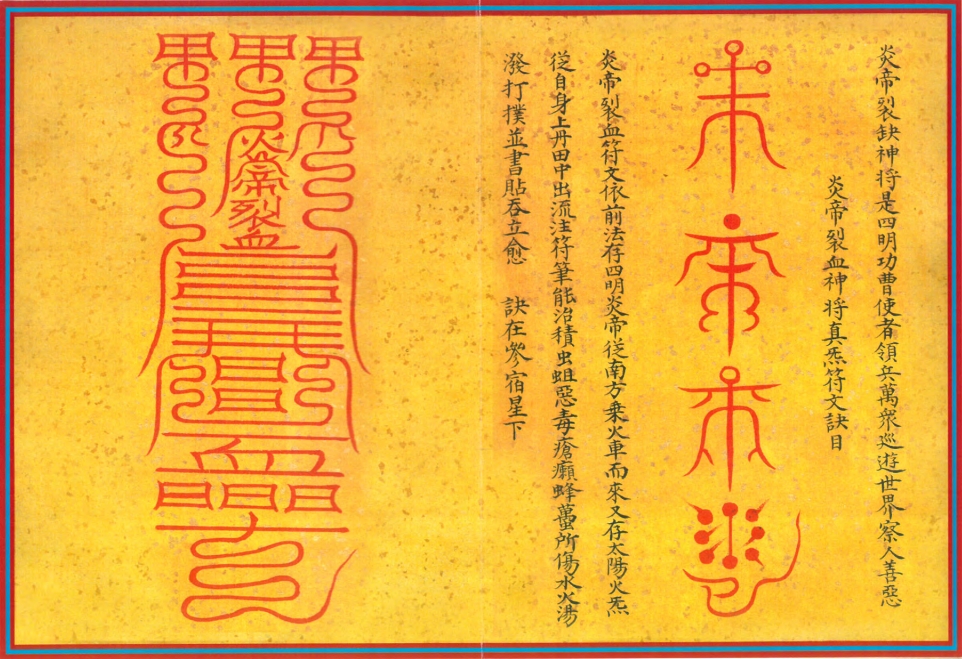 炎帝裂缺神将是四明功曹使者領兵萬衆巡遊世界察人善惡
炎帝裂血神将真炁符文訣目
炎帝裂血符文依前法存四明炎帝従南方乗火車而來又存太陽火炁
従自身上丹田中出流注符筆能治積虫蛆惡毒瘡癩蜂蠆所傷水火湯
潑打撲並書貼吞立愈 訣在參宿星下
炎帝裂血